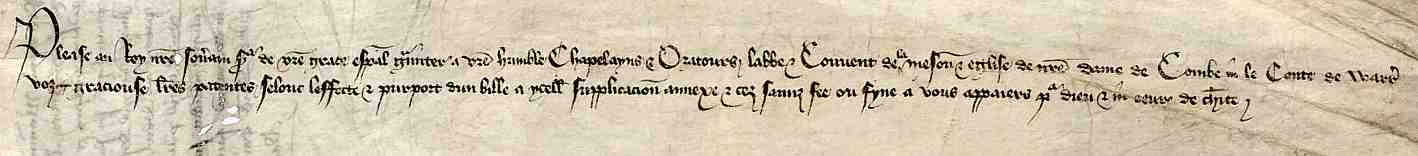 Please au Roy nre sovain sr de vre grace espāl grūnter a vre humble Chapelayns & Oratours labbe & Covent de la meson & eglise de nre dame de Combe in le Conte de Warr
voz graciouse lres patentes selonc leffecte & purport dun bille a ycell supplicacion annexe & cez sanz fee ou fyne a vous appaiers pr dieu & in oevr de chite